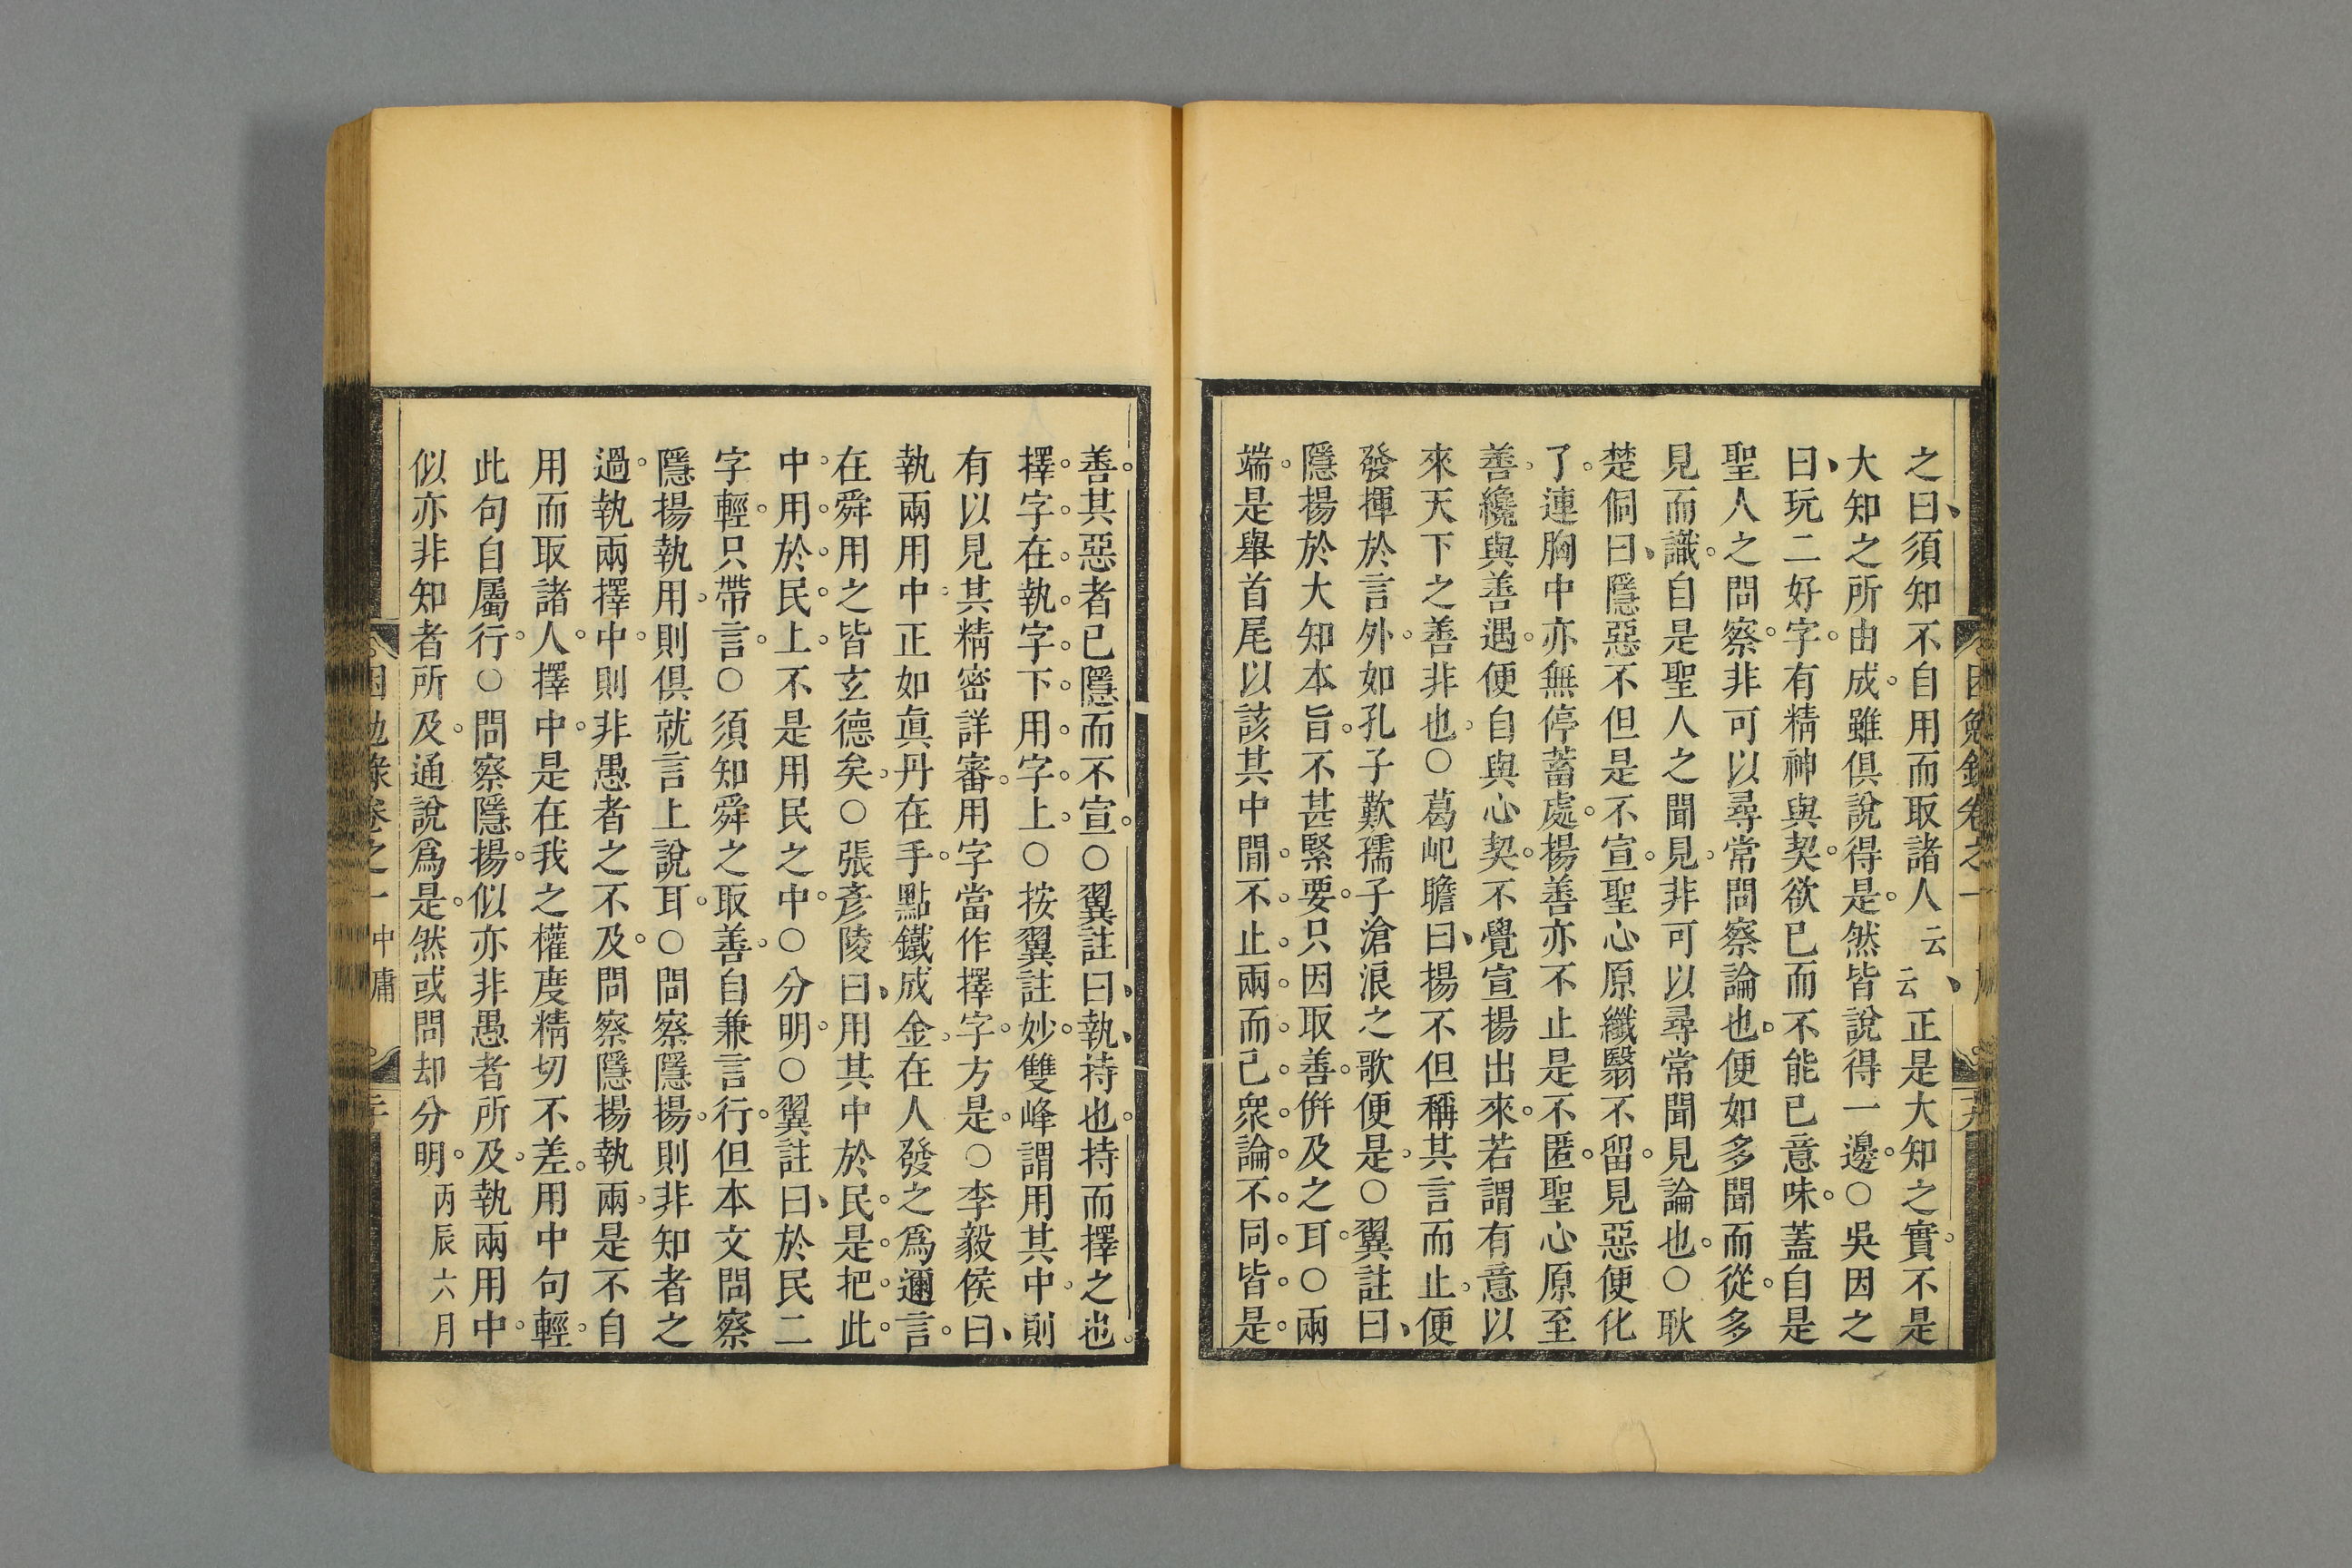 之曰須知不自用而取諸人云云正是大知之實不是
大知之所由成雖俱說得是然皆說得一邊○吳因之
曰玩二好字有精神與契欲已而不能已意味蓋自是
聖人之問察非可以尋常問察論也便如多聞而從多
見而識自是聖人之聞見非可以尋常聞見論也○耿
楚侗曰隱惡不但是不宣聖心原纖翳不留見惡便化
了連胸中亦無停蓄處揚善亦不止是不匿聖心原至
善纔與善遇便自與心契不覺宣揚出來若謂有意以
來天下之善非也○葛屺瞻曰揚不但稱其言而止便
發揮於言外如孔子歎孺子滄浪之歌便是○翼註曰
隱揚於大知本旨不甚緊要只因取善倂及之耳○兩
端是舉首尾以該其中間不止兩而己衆論不同皆是
善其惡者已隱而不宣○翼註曰執持也持而擇之也
擇字在執字下用字上○按翼註妙雙峰謂用其中則
有以見其精密詳審用字當作擇字方是○李毅侯曰
執兩用中正如眞丹在手點鐵成金在人發之爲邇言
在舜用之皆玄德矣○張彥陵曰用其中於民是把此
中用於民上不是用民之中○分明○翼註曰於民二
字輕只帶言○須知舜之取善自兼言行但本文問察
隱揚執用則俱就言上說耳○問察隱揚則非知者之
過執兩擇中則非愚者之不及問察隱揚執兩是不自
用而取諸人擇中是在我之權度精切不差用中句輕
此句自屬行○問察隱揚似亦非愚者所及執兩用中
似亦非知者所及通說爲是然或問却分明丙辰六月
困勉錄卷之一 中庸